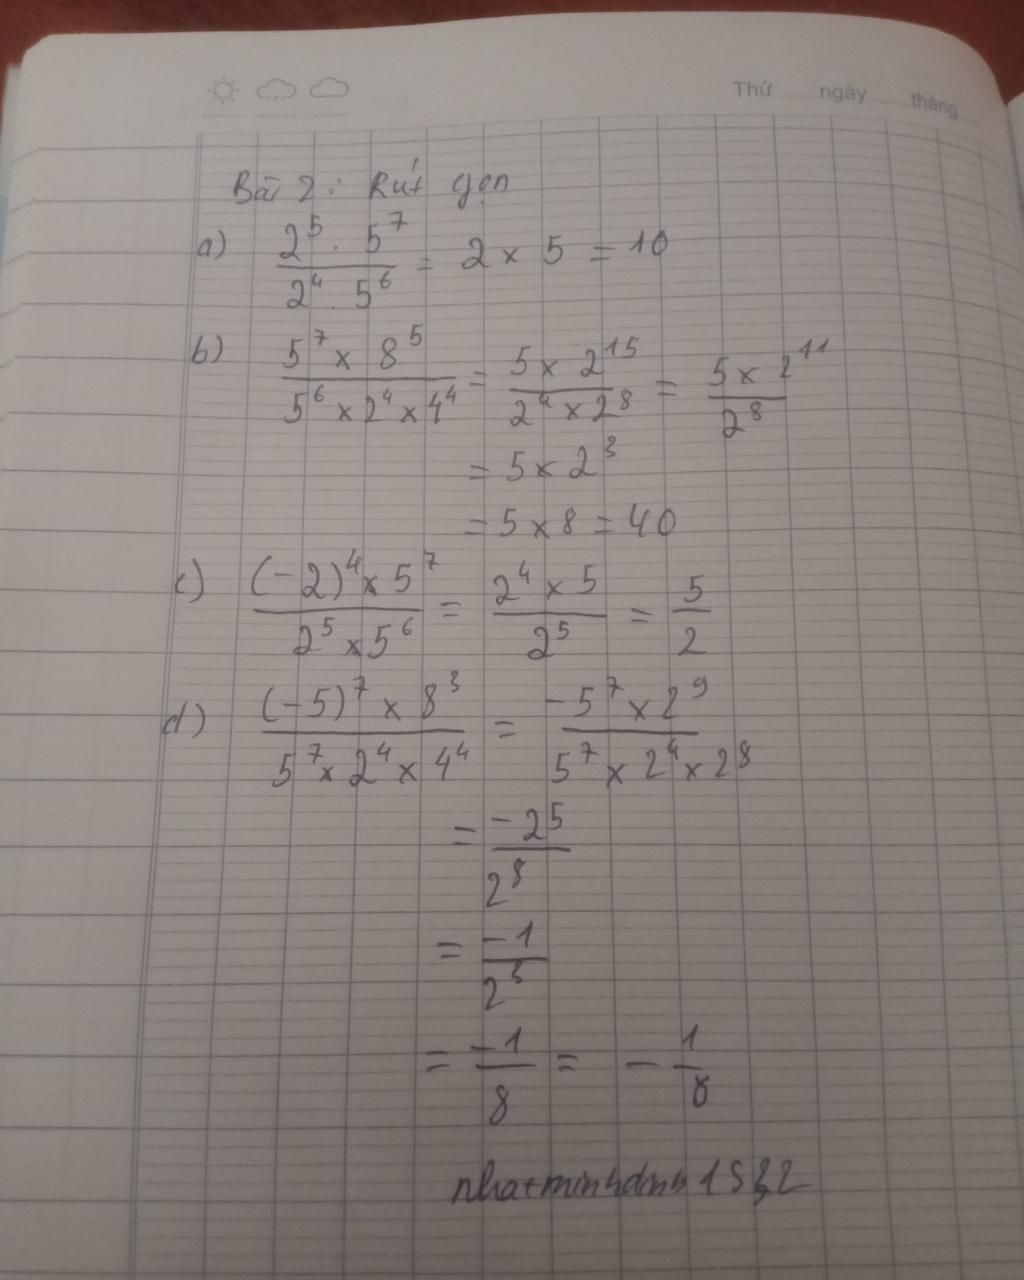 Thứ ngày tháng
Bài 2: Rút gọn
a) (2^5 . 5^7)/(2^4 . 5^6) = 2 × 5 = 10
b) (5^7 × 8^5)/(5^6 × 2^4 × 4^4) = (5 × 2^15)/(2^4 × 2^8) = (5 × 2^11)/(2^8)
= 5 × 2^3
= 5 × 8 = 40
c) ((-2)^4 × 5^7)/(2^5 × 5^6) = (2^4 × 5)/(2^5) = 5/2
d) ((-5)^7 × 8^3)/(5^7 × 2^4 × 4^4) = (-5^7 × 2^9)/(5^7 × 2^4 × 2^8)
= (-2^5)/(2^8)
= (-1)/(2^3)
= (-1)/8 = - 1/8